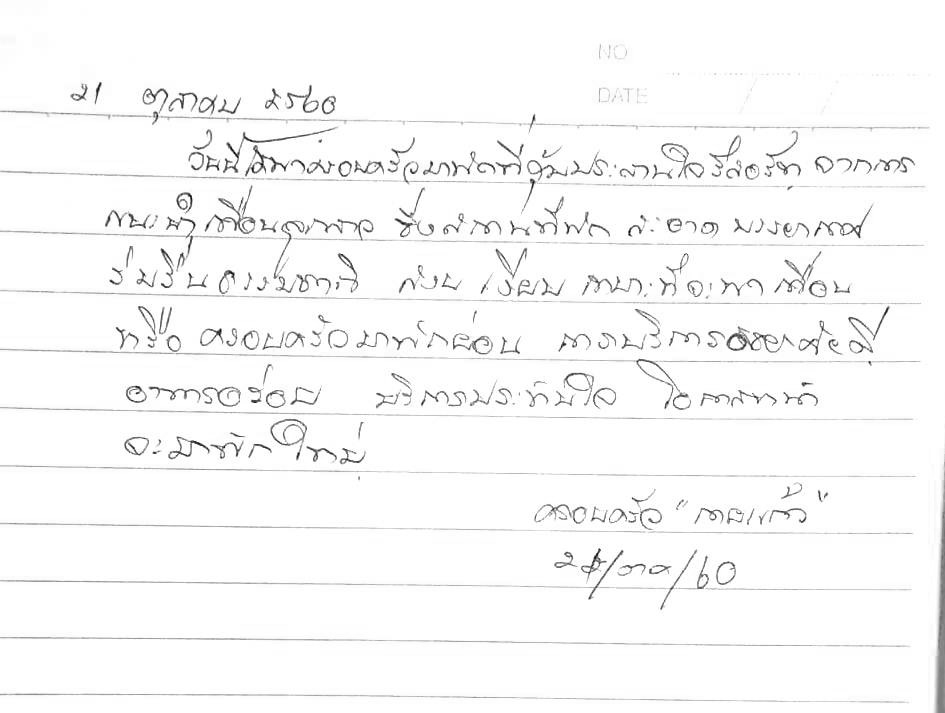 NO
DATE / /
21 ตุลาคม 2560
วันนี้ได้พาครอบครัวมาพักที่อุ้มประสานใจรีสอร์ท จากการ
แนะนำเพื่อนลูกสาว ซึ่งสถานที่พัก สะอาด บรรยากาศ
ร่มรื่นธรรมชาติ สงบ เงียบ เหมาะที่จะพาเพื่อน
หรือ ครอบครัวมาพักผ่อน การบริการ
อาหารอร่อย บริการประทับใจ โอกาสหน้า
จะมาพักใหม่
ครอบครัว " "
/60